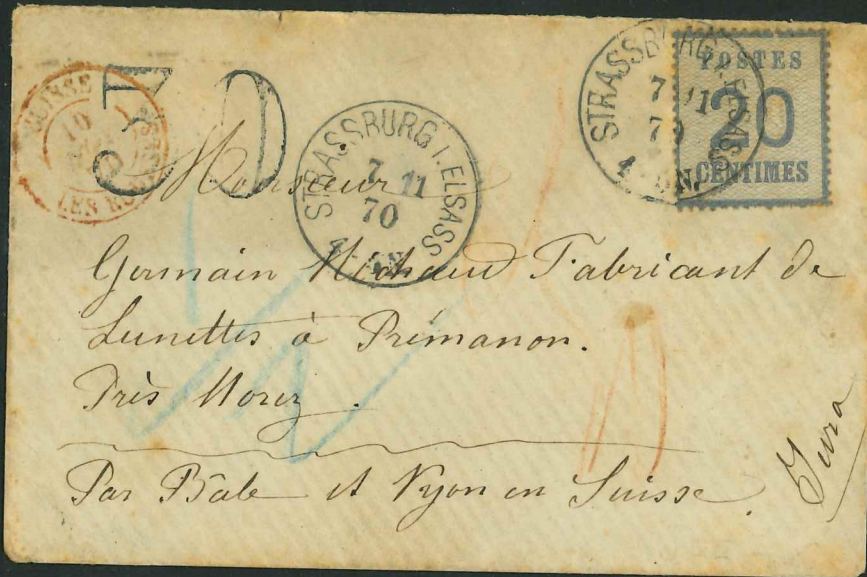 SUISSE
10
LES ROUSSES
STRASSBURG I. ELSASS
7 11
70
4-5N.
STRASSBURG I. ELSASS
7 11
70
4-5N.
POSTES
20
CENTIMES
Monsieur
Germain Michaud Fabricant de
Lunettes à Prémanon.
Près Morez.
Jura
Par Bâle et Nyon en Suisse.